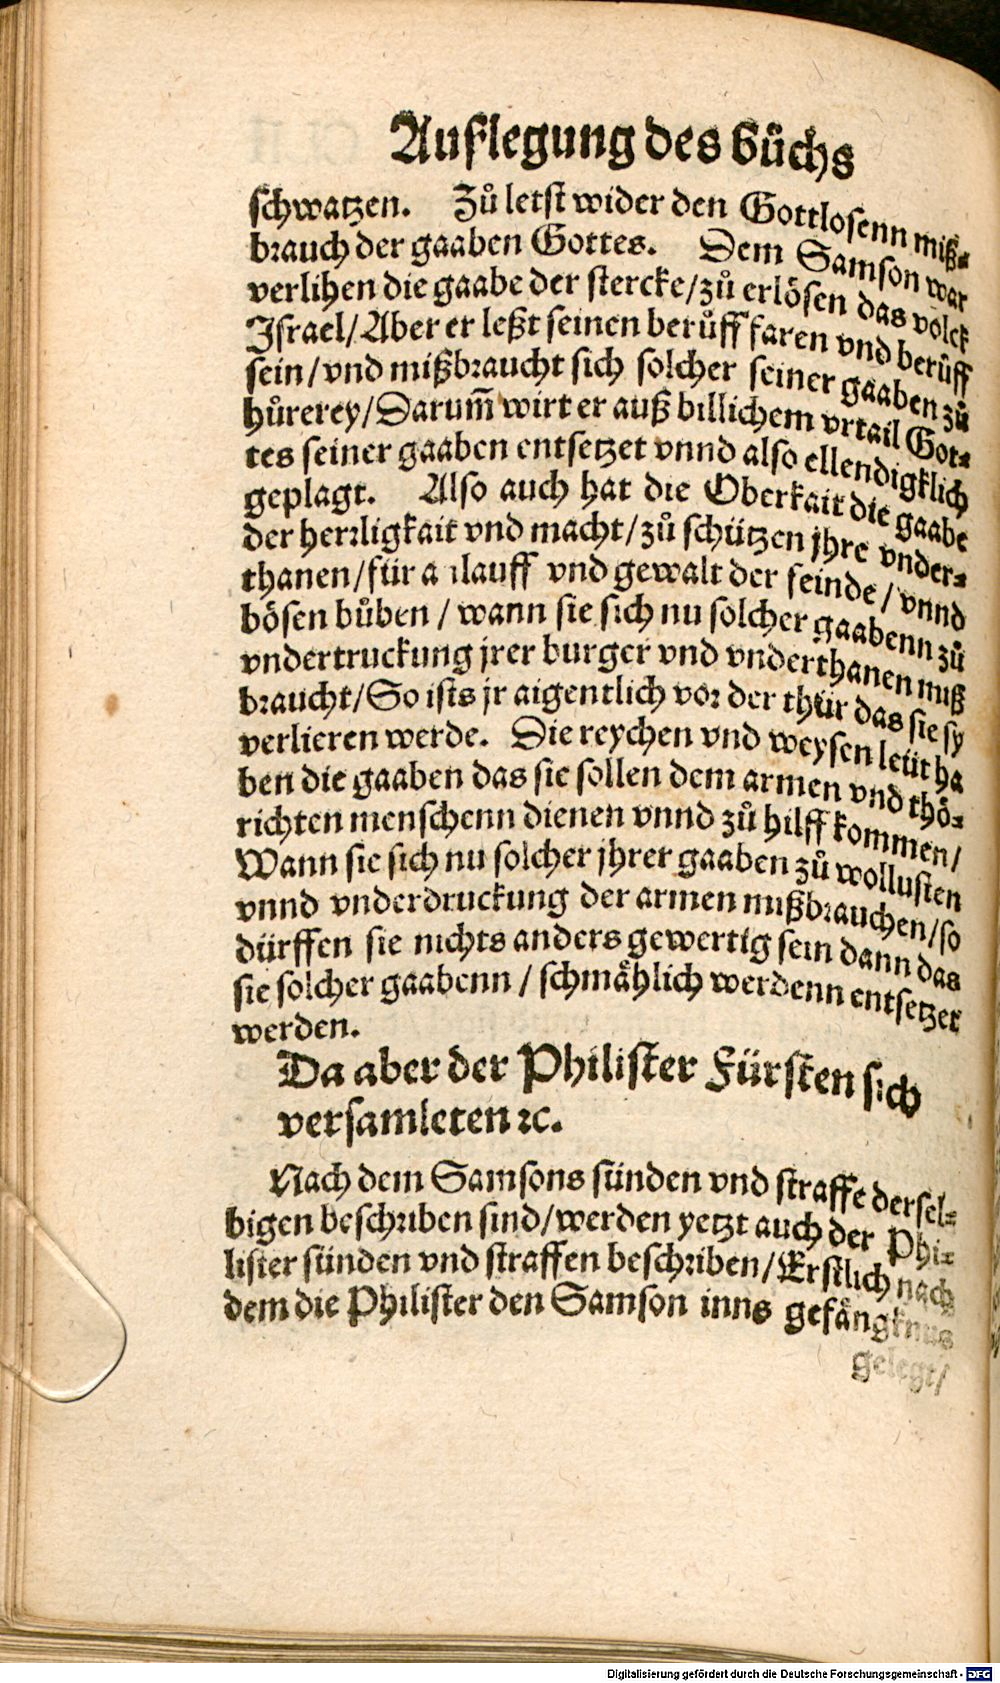 Außlegung des bůchs
schwatzen. Zů letst wider den Gottlosenn miß-
brauch der gaaben Gottes. Dem Samson war
verlihen die gaabe der stercke/zů erlösen das volck
Israel/Aber er leßt seinen berůff faren vnd berůff
sein/vnd mißbraucht sich solcher seiner gaaben zů
hůrerey/Darum̃ wirt er auß billichem vrtail Got-
tes seiner gaaben entsetzet vnnd also ellendigklich
geplagt. Also auch hat die Oberkait die gaabe
der herrligkait vnd macht/zů schützen jhre vnder-
thanen/für a ilauff vnd gewalt der feinde/vnnd
bösen bůben/wann sie sich nu solcher gaabenn zů
vndertruckung jrer burger vnd vnderthanen miß
braucht/So ists jr aigentlich vor der thür das sie sy
verlieren werde. Die reychen vnd weysen leüt ha
ben die gaaben das sie sollen dem armen vnd thö-
richten menschenn dienen vnnd zů hilff kommen/
Wann sie sich nu solcher jhrer gaaben zů wollusten
vnnd vnderdruckung der armen mißbrauchen/so
dürffen sie nichts anders gewertig sein dann das
sie solcher gaabenn/schmählich werdenn entsetzet
werden.
Da aber der Philister Fürsten sich
versamleten ꝛc.
Nach dem Samsons sünden vnd straffe dersel-
bigen beschriben sind/werden yetzt auch der Phi-
lister sünden vnd straffen beschriben/Erstlich nach
dem die Philister den Samson inns gefängknus
gelegt/
Digitalisierung gefördert durch die Deutsche Forschungsgemeinschaft - DFG